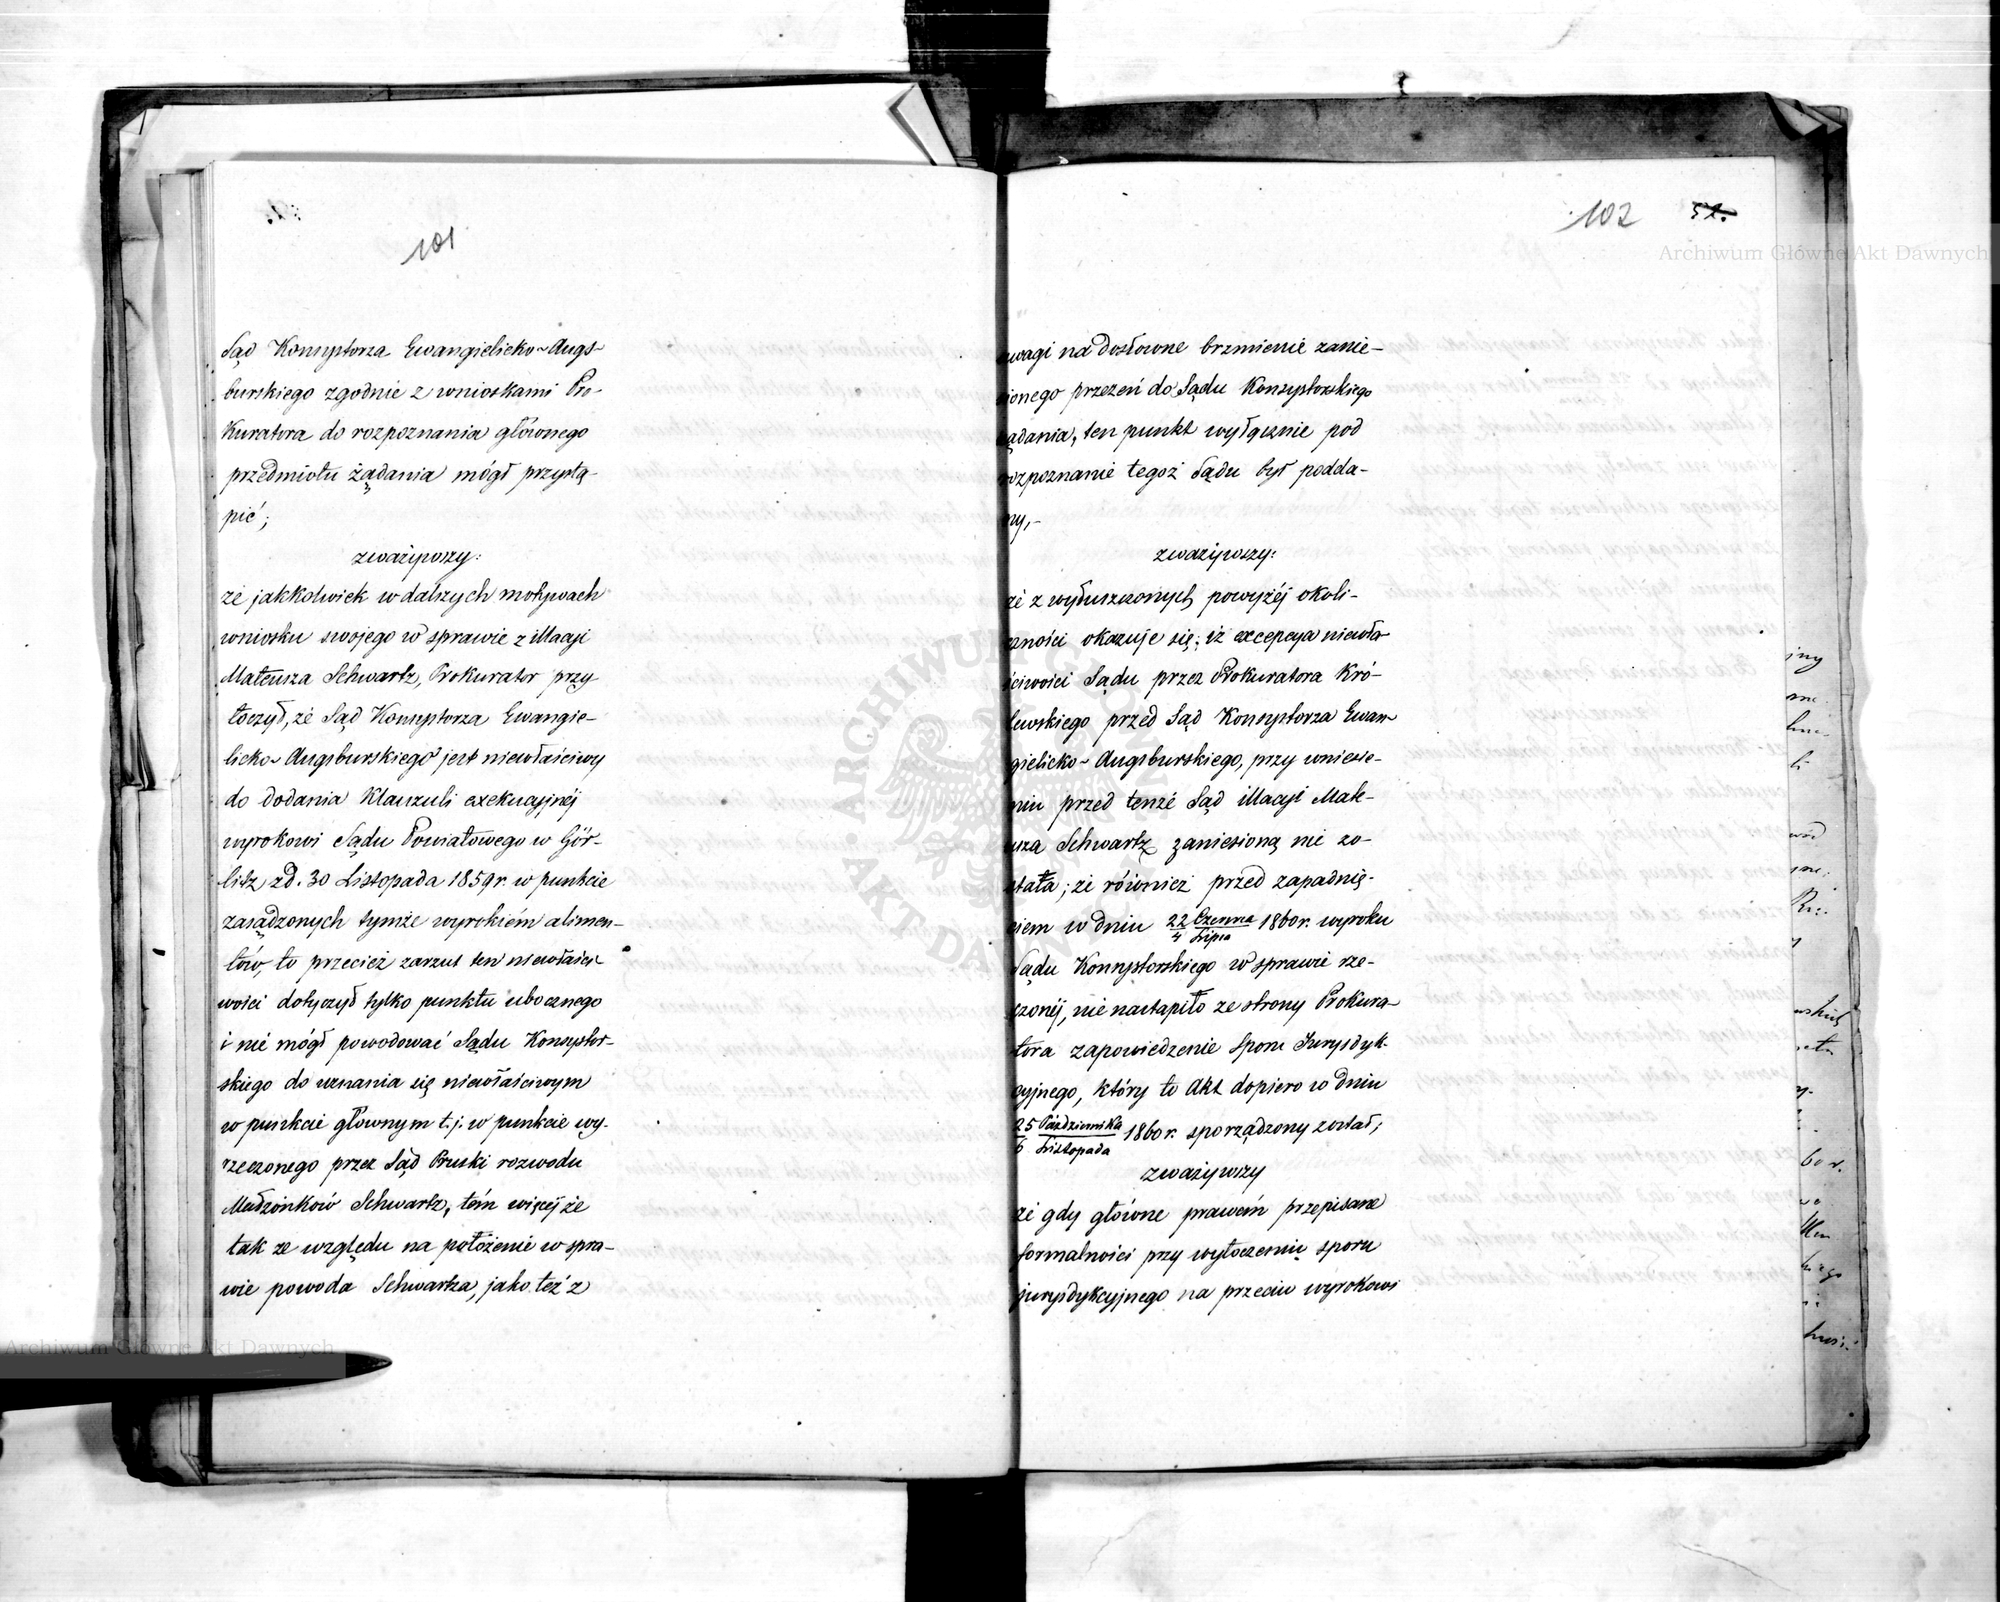 101
Sąd Konsystorza Ewangielicko-Augs-
burskiego zgodnie z wnioskami Pro-
kuratora do rozpoznania głównego
przedmiotu żądania mógł przystą-
pić;
zważywszy:
że jakkolwiek w dalszych motywach
wniosku swojego w sprawie z illacyi
Mateusza Schwartz, Prokurator przy-
toczył, że Sąd Konsystorza Ewangie-
licko-Augsburskiego jest niewłaściwy
do dodania Klauzuli exekucyjnéj
wyrokowi Sądu Powiatowego w Gör-
litz z d. 30 Listopada 1859 r. w punkcie
zasądzonych tymże wyrokiem alimen-
tów, to przecież zarzut ten niewłaści-
wości dotyczył tylko punktu ubocznego
i nie mógł powodować Sądu Konsystor-
skiego do uznania się niewłaściwym
w punkcie głównym t.j. w punkcie wy-
rzeczonego przez Sąd Pruski rozwodu
Małżonków Schwartz, tém więcéj że
tak ze względu na położenie w spra-
wie powoda Schwartza, jako też z
102 51.
uwagi na dosłowne brzmienie zanie-
sionego przezeń do Sądu Konsystorskiego
żądania, ten punkt wyłącznie pod
rozpoznanie tegoż Sądu był podda-
ny,-
zważywszy:
że z wyłuszczonych powyżéj okoli-
czności okazuje się, iż excepcya niewła-
ściwości Sądu przez Prokuratora Kró-
lewskiego przed Sąd Konsystorza Ewan-
gielicko-Augsburskiego, przy wniesie-
niu przed tenże Sąd illacyi Mate-
usza Schwartz zaniesioną nie zo-
stała; że również przed zapadnię-
ciem w dniu 22 Czerwca / 4 Lipca 1860 r. wyroku
Sądu Konsystorskiego w sprawie rze-
czonéj, nie nastąpiło ze strony Prokura-
tora zapowiedzenie sporu Jurysdyk-
cyjnego, który to Akt dopiero w dniu
25 Października / 6 Listopada 1860 r. sporządzony został;
zważywszy
że gdy główne prawem przepisane
formalności przy wytoczeniu sporu
jurysdykcyjnego na przeciw wyrokowi
Archiwum Główne Akt Dawnych
Archiwum Główne Akt Dawnych